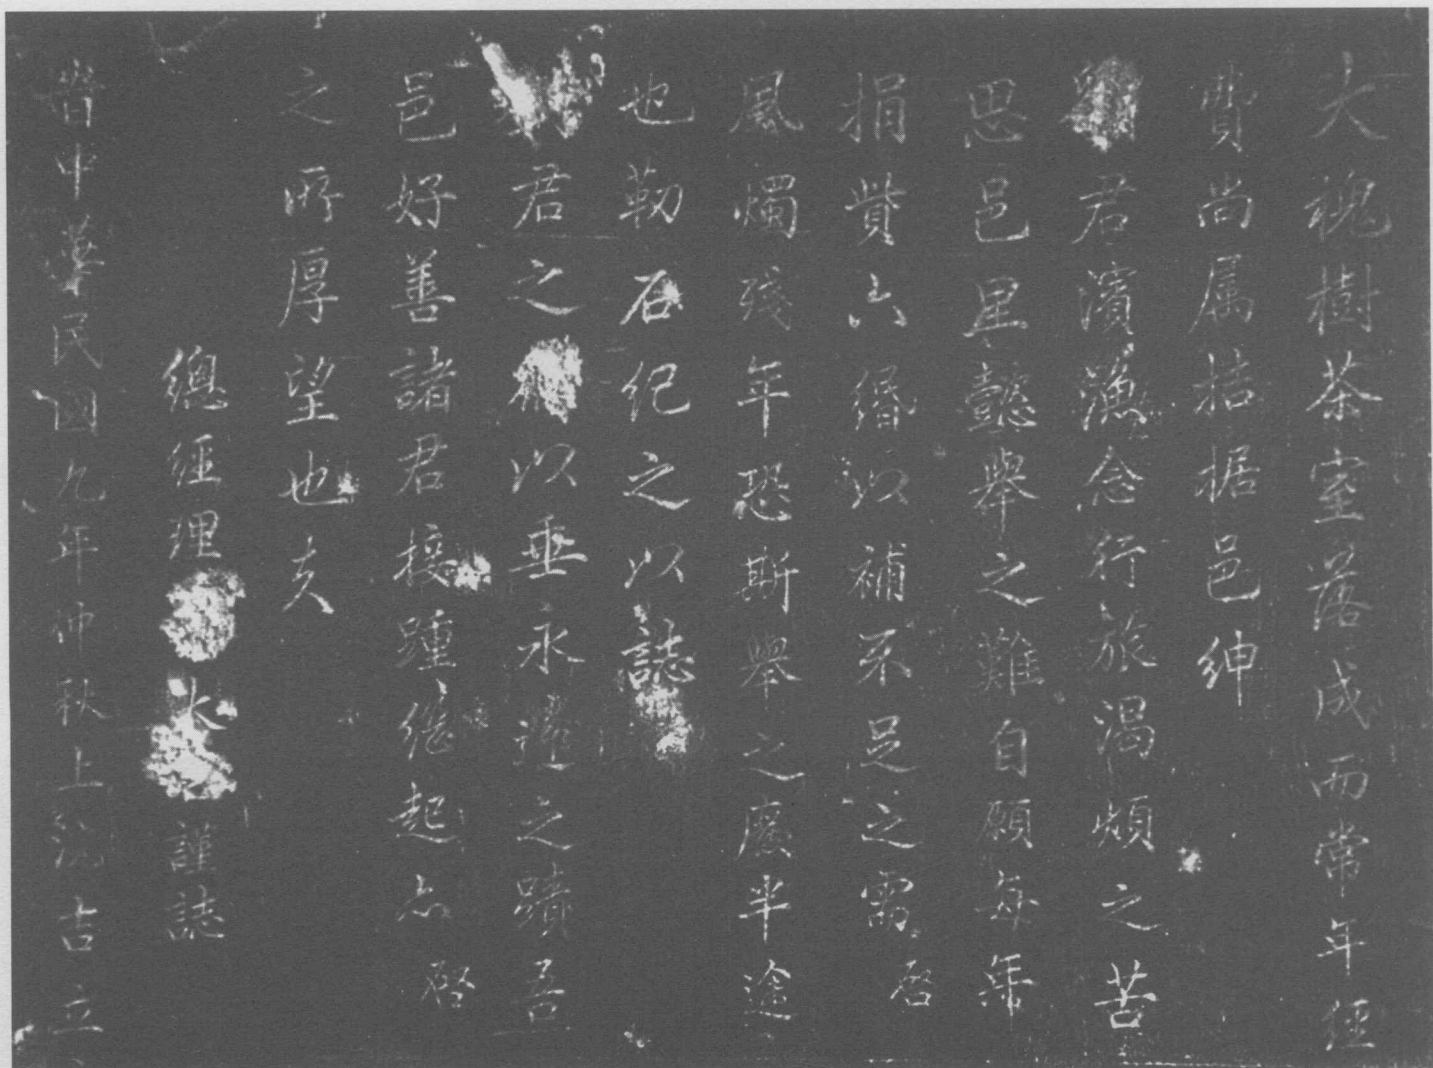 大槐樹茶室落成而常年經
費尚属拮据邑紳
君濱漁念行旅渴煩之苦
思邑里懿舉之難自願每年
捐貲六緡以補不足之需啟
風燭殘年恐斯舉之廢半途
也勒石纪之以誌
君之以垂永遠之蹟吾
邑好善諸君接踵繼起亦啟
之所厚望也夫
總经理謹誌
旹中華民國九年仲秋上浣吉立